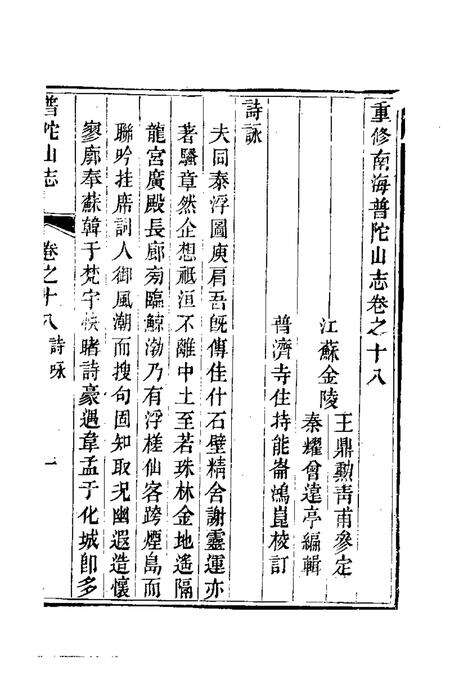 重修南海普陀山志卷之十八
江蘇金陵
王鼎勲靑甫參定
秦耀曾遠亭編輯
普濟寺住持能崙鴻崑校訂
詩詠
夫同泰浮圖庾肩吾旣傳佳什石壁精舍謝靈運亦
著騷章然企想祇洹不離中土至若珠林金地遙隔
龍宮廣殿長廊旁臨鯨渤乃有浮槎仙客跨煙島而
聯吟挂席詞人御風潮而搜句固知取況幽遐造懷
寥廓奉蘇韓于梵宇快睹詩豪遇韋孟于化城卽多
普陀山志
卷之十八
詩咏
一